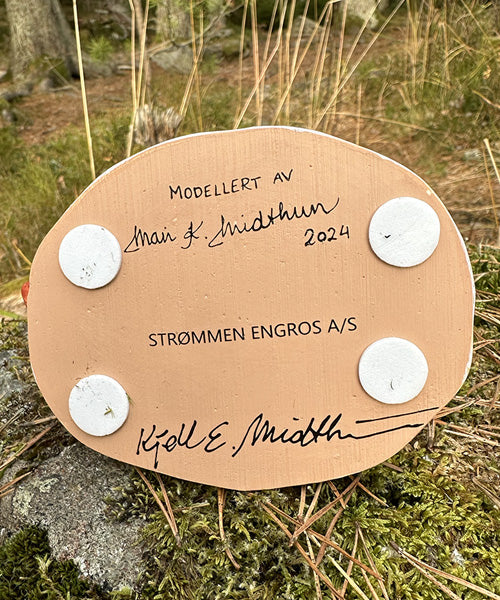 MODELLERT AV
Mari K. Midthun
2024
STRØMMEN ENGROS A/S
Kjell E. Midthun